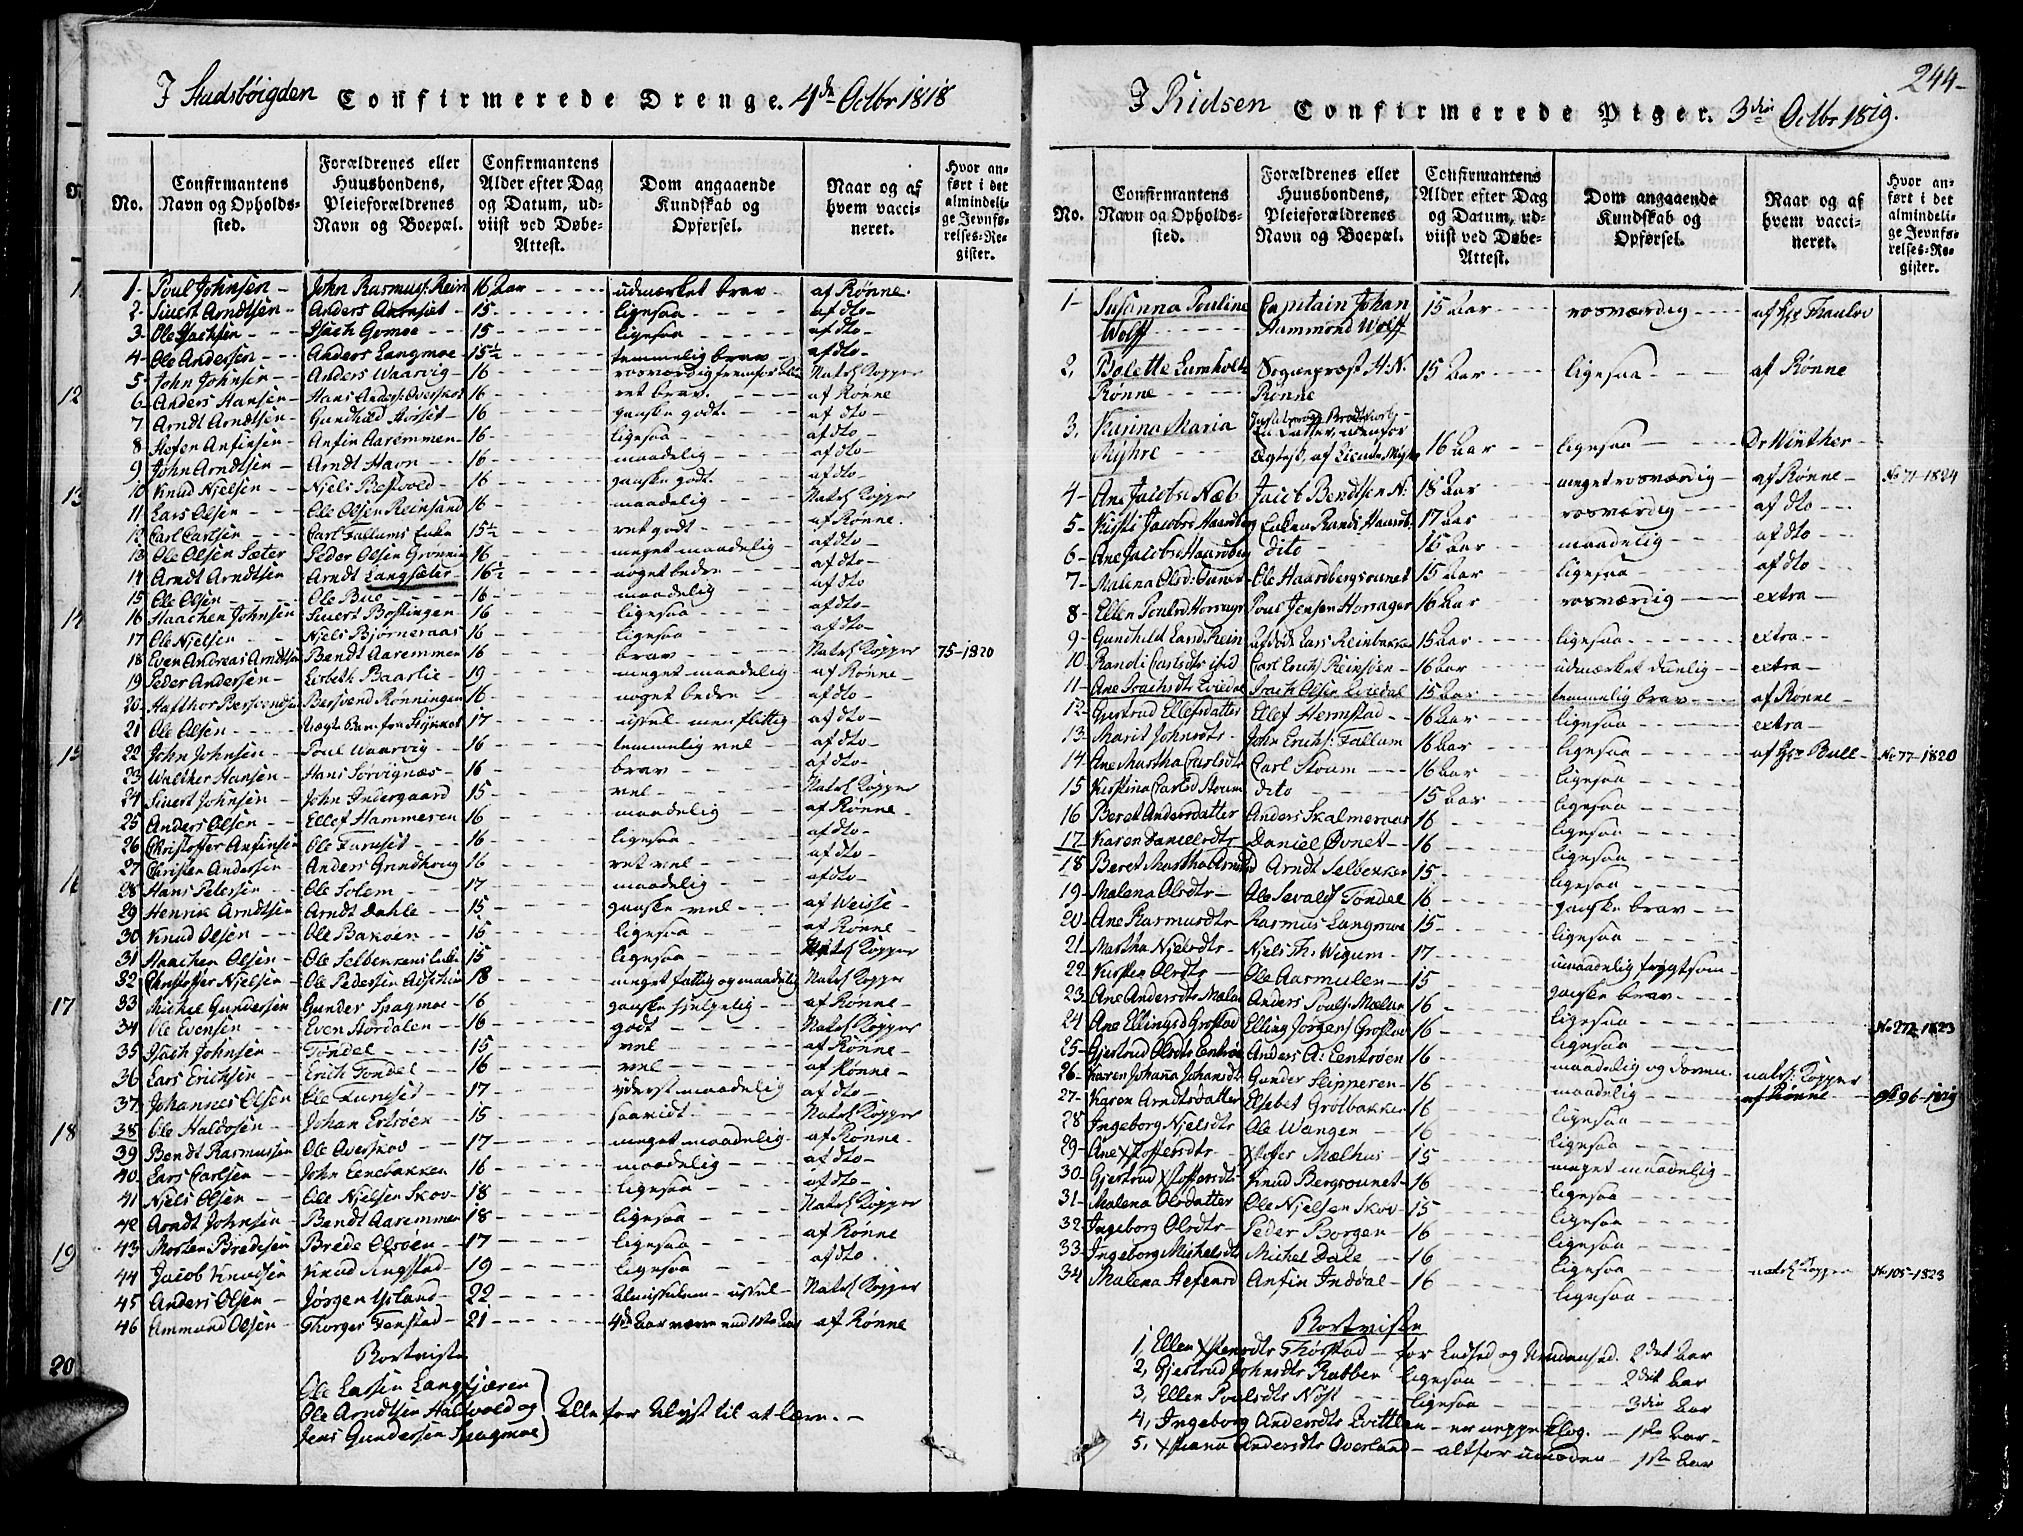 I Stadsbøigden Confirmerede Drenge. 4de Octbr 1818
No.
Confirmantens Navn og Opholds-sted.
Forældrenes eller Huusbondens, Pleieforældrenes Navn og Boepæl.
Confirmantens Alder efter Dag og Datum, ud-viist ved Døbe-Attest.
Dom angaaende Kundskab og Opførsel.
Naar og af hvem vacci-neret.
Hvor an-ført i det almindeli-ge Jevnfø-relses-Re-gister.
1- Poul Johnsen - John Rasmuss: Rein 16 Aar - udmærket brav - af Rønne.
2- Siuert Arndtsen - Anders Aarnset - 15 - ligesaa - af dto -
3- Ole Isachsen - Isach Gomoe - 15 - ligesaa - af dto -
4- Ole Andersen - Anders Langmoe - 15½ - temmelig brav - af dto -
5- John Johnsen - Anders Waarvig - 16 - Natl: Kopper
6- Anders Hansen - Hans Anders: Overskot 16 - ret brav. - af Rønne
7 Arndt Arndtsen - Gundhild Horset - 16 - ganske godt. - af dto -
8 Stefen Anfinsen - Anfin Aaremmen - 16 - ligesaa - af dto -
9 John Arndtsen - Arndt Havn - 16 - maadelig - af dto -
10 Knud Nielsen - Niels Prestvold - 16 - ganske godt. - af dto -
11- Lars Olsen - Ole Olsen Reinsand 16 - maadelig - Natl: Kopper
12 Carl Carlsen - Carl Fallums Enke 15½ - ret godt - af Rønne.
13 Ole Olsen Sæter Peder Olsen Grønnin 16 - meget maadelig - af dto -
14 Arndt Arndtsen Arndt Langsæter - 16½ - noget bedre - af dto -
15 Ole Olsen - Ole Bue - 16 - maadelig - af dto
16 Haachen Johnsen Siuert Bostingen 16 - ligesaa - af dto -
17 Ole Nielsen - Niels Bjørneraas 16 - ligesaa - af dto -
18 Even Andreas Arndtsen Bendt Aaremmen 16 - brav - Natl: Kopper 75-1820
19 Peder Andersen - Lisbeth Baarlie - 19 - meget maadelig - af Rønne -
20 Hafthor Bersvendsen Bersvend Rønningen 16 - noget bedre - af dto -
21 Ole Olsen - 17 - ussel men flittig - af dto -
22 John Johnsen - Poul Waarvig - 16 - temmelig vel - af dto -
23 Walther Hansen - Hans Sørvignæs - 16 - brav - af dto -
24 Siuert Johnsen - John Indergaard 15 - vel - Natl: Kopper
25 Anders Olsen - Ellef Hammeren 16 - maadelig - af Rønne -
26 Christoffer Anfinsen Ole Farnset - 16 - ligesaa - af dto -
27 Christen Andersen Anders Grindhoug 16 - ret vel - af dto -
28 Hans Petersen - Ole Solem - 17 - maadelig - af dto -
29 Henrik Arndtsen Arndt Dahle - 15 - ganske vel - af Weisse -
30 Knud Olsen - Ole Bakøen - 15 - ligesaa - af Rønne -
31 Haachen Olsen - 15 - ligesaa - Natl: Kopper
32 Christoffer Nielsen - Ole Pedersen 18 - meget fattig og maadelig Natl: Kopper
33 Michel Gundersen Gunder Spagmoe 16 - ganske - af Rønne -
34 Ole Evensen - Even Stordalen - 16 - godt - Natl: Kopper
35 Isach Johnsen - Tøndel - 15 - vel - af Rønne -
36 Lars Erichsen - Erich Tøndel - 16 - vel - af Rønne -
37 Johannes Olsen Ole Lundset - 17 - yderst maadelig - af dto -
38 Ole Halvosen - Johan Ertsøen 15 - saavidt - Natl: Kopper
39 Bendt Rasmussen Ole Overskov - 17 - meget maadelig - af Rønne -
40 Lars Carlsen - John Lenebakken 16 - maadelig - af dto -
41 Niels Olsen - Ole Nielsen Skov - 18 - ligesaa - af dto -
42 Arndt Johnsen - Bendt Aaremmen 18 - ligesaa - Natl: Kopper
43 Morten Bredesen Brede Olsøen - 17 - ligesaa - af Rønne
44 Jacob Knudsen Knud Ringstad - 19 - ligesaa - af dto.
45 Anders Olsen - Jørgen Ysland - 22 - ussel - Natl: Kopper
46 Ammund Olsen - Thorger Fenstad - 21 - af Rønne
Bortviste
Ole Larsen Langkjæren
Ole Arndtsen Haltvold og
Jens Gundersen Spagmoe
Alle for Ulyst til at lære. -
12
13
14
15
16
17
18
19
20
244-
I Ridsen Confirmerede Piger. 3die Octbr 1819.
No.
Confirmantens Navn og Opholds-sted.
Forældrenes eller Huusbondens, Pleieforældrenes Navn og Boepæl.
Confirmantens Alder efter Dag og Datum, ud-viist ved Døbe-Attest.
Dom angaaende Kundskab og Opførsel.
Naar og af hvem vacci-neret.
Hvor an-ført i det almindeli-ge Jevnfø-relses-Re-gister.
1- Susanna Pouline Capitain Johan 15 Aar - rosværdig - af Hr Thaulov
Wolff - Hammond Wolff
2, Bolette Lumholtz Sogneprøst H: N: 15 Aar - ligesaa - af Rønne
Rønne - Rønne
3, Karina Maria
Myhre - 16 Aar - ligesaa - Dr Winther -
4- Ane Jacobsd Næb - Jacob Bendtsen N. 18 Aar - meget rosværdig - af Rønne - No 71-1824
5- Kirsti Jacobsd Haardberg Enken Randi Haardb. 17 Aar - rosværdig - af dto -
6- Ane Jacobsd Haardberg dito - 15 Aar - maadelig - af dto -
7- Malena Olsd: Ounet - Ole Haardbergsounet 15 Aar - ligesaa - af dto -
8- Ellen Poulsd Horrager Poul Jensen Horrager 16 Aar - rosværdig - extra -
9- Gundhild Larsd Rein afdøde Lars Reinbakken 15 Aar - ligesaa - extra -
10 Randi Carlsdtr ibid Carl Erichs: Reinsjen - 16 Aar - udmærket duelig - extra -
11- Ane Isachsdtr Isach Olsen 15 Aar - temmelig brav - af Rønne -
12- Gjertrud Ellefsdatter Ellef Hermstad - 16 Aar - ligesaa - extra -
13- Marit Johnsdtr - John Erichs: Fallum 16 Aar - ligesaa - af Hr Bull - No 77-1820
14- Ane Martha Carlsdtr Carl Stoum - 16 Aar - ligesaa
15 Kirstina Carlsd Stoum dito - 15 Aar - ligesaa
16 Beret Andersdatter Anders Skalmeraas 16 - ligesaa
17- Karen Danielsdtr Daniel Ovnet - 16 - ligesaa
18 Beret Martha Arndtsd Arndt Selbekken 15 - ligesaa
19- Malena Olsdtr - Ole Sevalds Tøndel 16 - ganske brav -
20- Ane Rasmusdtr - Rasmus Langmoe 15 - ligesaa
21- Martha Nielsdtr - Niels Th: Wigum - 17 - umaadelig frygtsom -
22- Kirsten Olsdtr - Ole Aasmulen - 15 - ganske brav -
23- Ane Andersdtr Mælan Anders Pouls: Mælan 16 - ligesaa
24 Ane Ellingsd Grøstad Elling Jørgens: Grøstad 16 - ligesaa - No 272-1823
25- Gjertrud Olsdtr Anders A: Lentsøen 16 - maadelig og
26- Karen Johana Johansdtr Gunder Slipperen - 16 - maadelig - natl: Kopper
27- Karen Arndtsdatter Elsebet Grøtbakken 16 - ligesaa - af Rønne - No 96-1819
28 Ingeborg Nielsdtr Ole Wangen - 16 - ligesaa
29- Ane Xstoffersdtr - Xstoffer Mælhus - 15 - meget maadelig -
30- Gjertrud Xstoffersdtr - Knud Bergsounet - 16 - ligesaa
31- Malena Olsdatter Ole Nielsen Skov - 15 - ligesaa
32- Ingeborg Olsdtr - Peder Borgen - 16 - ligesaa
33- Ingeborg Michelsdtr Michel Dale - 16 - ligesaa
34 Malena Stefensd Anfin Indøal - 16 - ligesaa - natl: Kopper No 105-1823
Bortviste
1, Ellen Xstensdtr Thørstad - for Ladhed og 2det Aar
2, Gjertrud Johnsdtr Rabben ligesaa - 2det Aar
3, Ellen Poulsdtr Nøst - ligesaa - 3die Aar
4, Ingeborg Andersdtr - er neppe klog. - 1ste Aar -
5, Xstiana Andersdtr Overland - altfor umoden - 1ste Aar